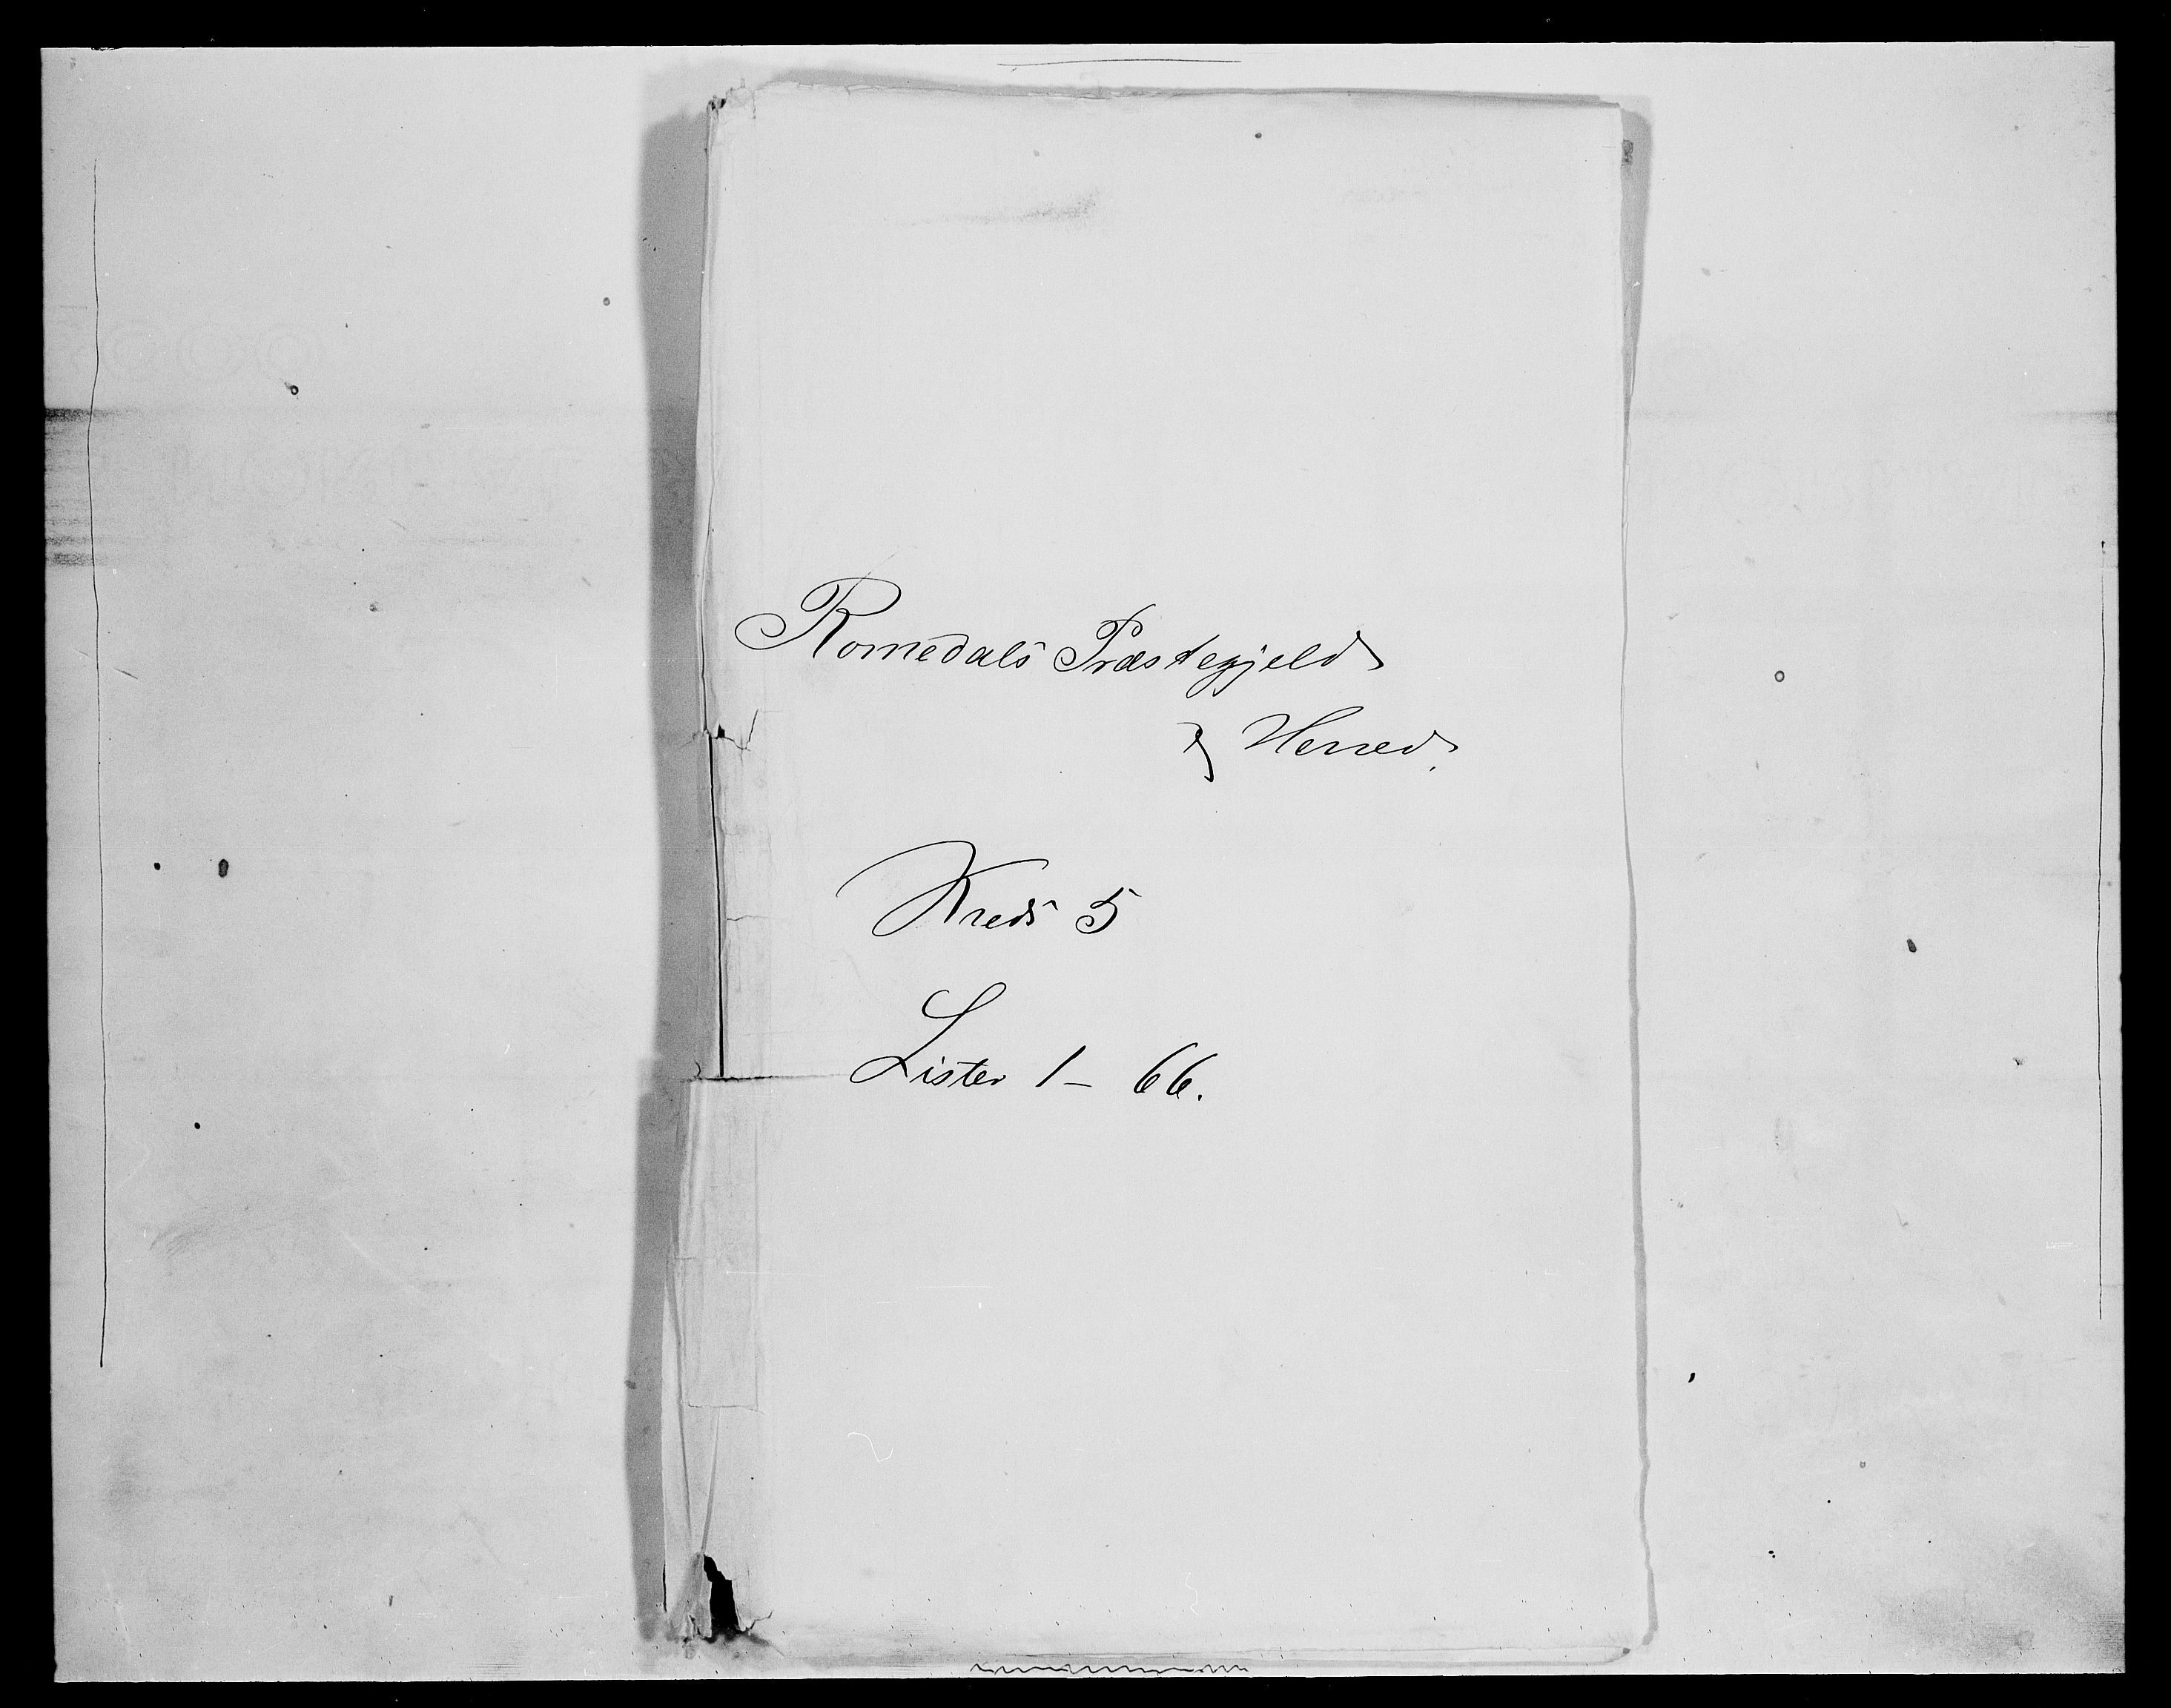 Romedals Præstegjeld
& Herred.
Kreds 5
Lister 1 - 66.